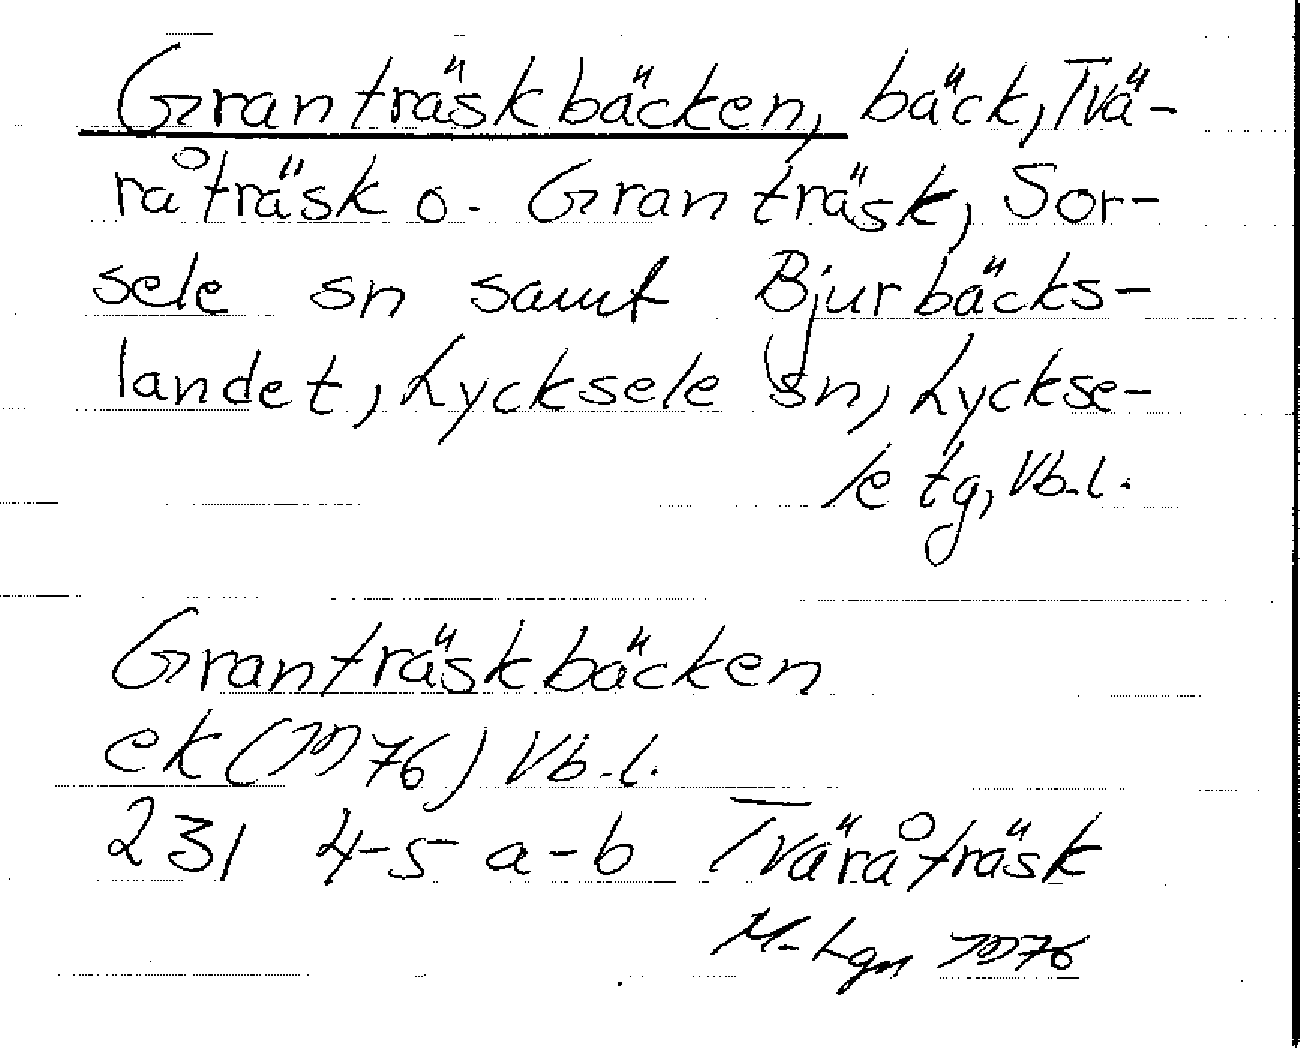 Granträskbäcken, bäck, Tvä-
råträsk o. Granträsk, Sor-
sele sn samt Bjurbäcks-
landet, Lycksele sn, Lyckse-
le tg, Vb.l.
Granträskbäcken
ek (1976) Vb.l.
231 4-5 a-b Tväråträsk
M-Lgn 1976